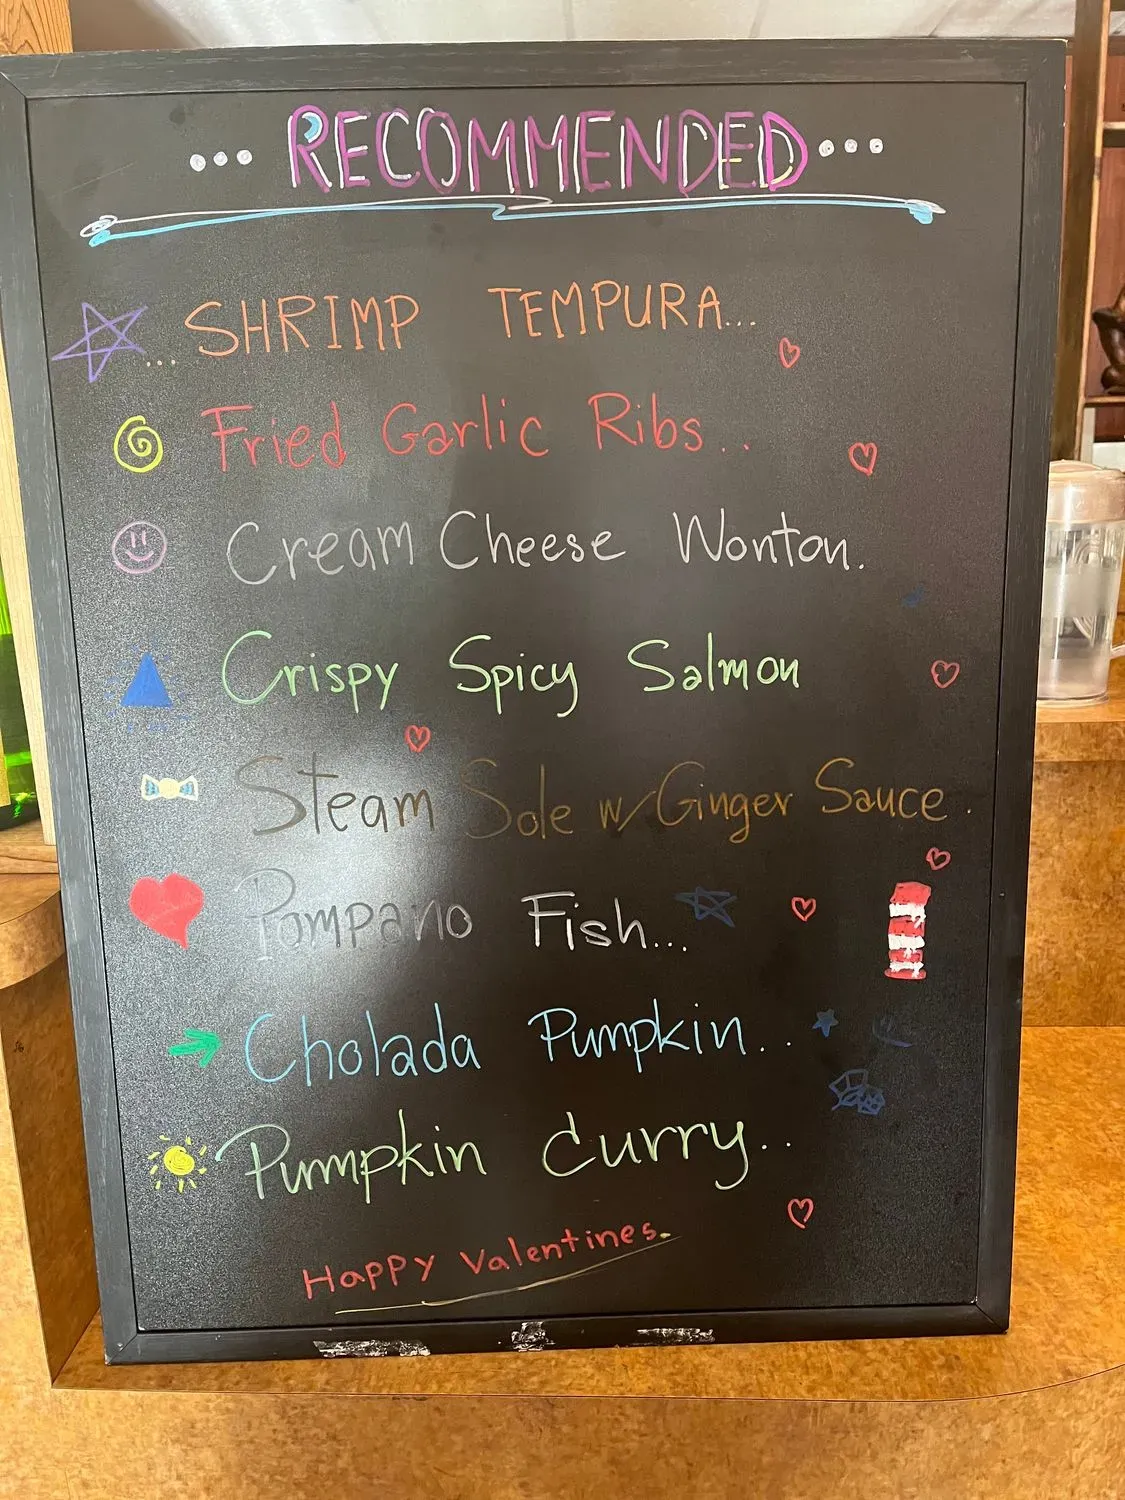 ... RECOMMENDED ...
... SHRIMP TEMPURA...
Fried Garlic Ribs..
Cream Cheese Wonton.
Crispy Spicy Salmon
Steam Sole w/Ginger Sauce.
Pompano Fish...
Cholada Pumpkin..
Pumpkin Curry..
Happy Valentines.